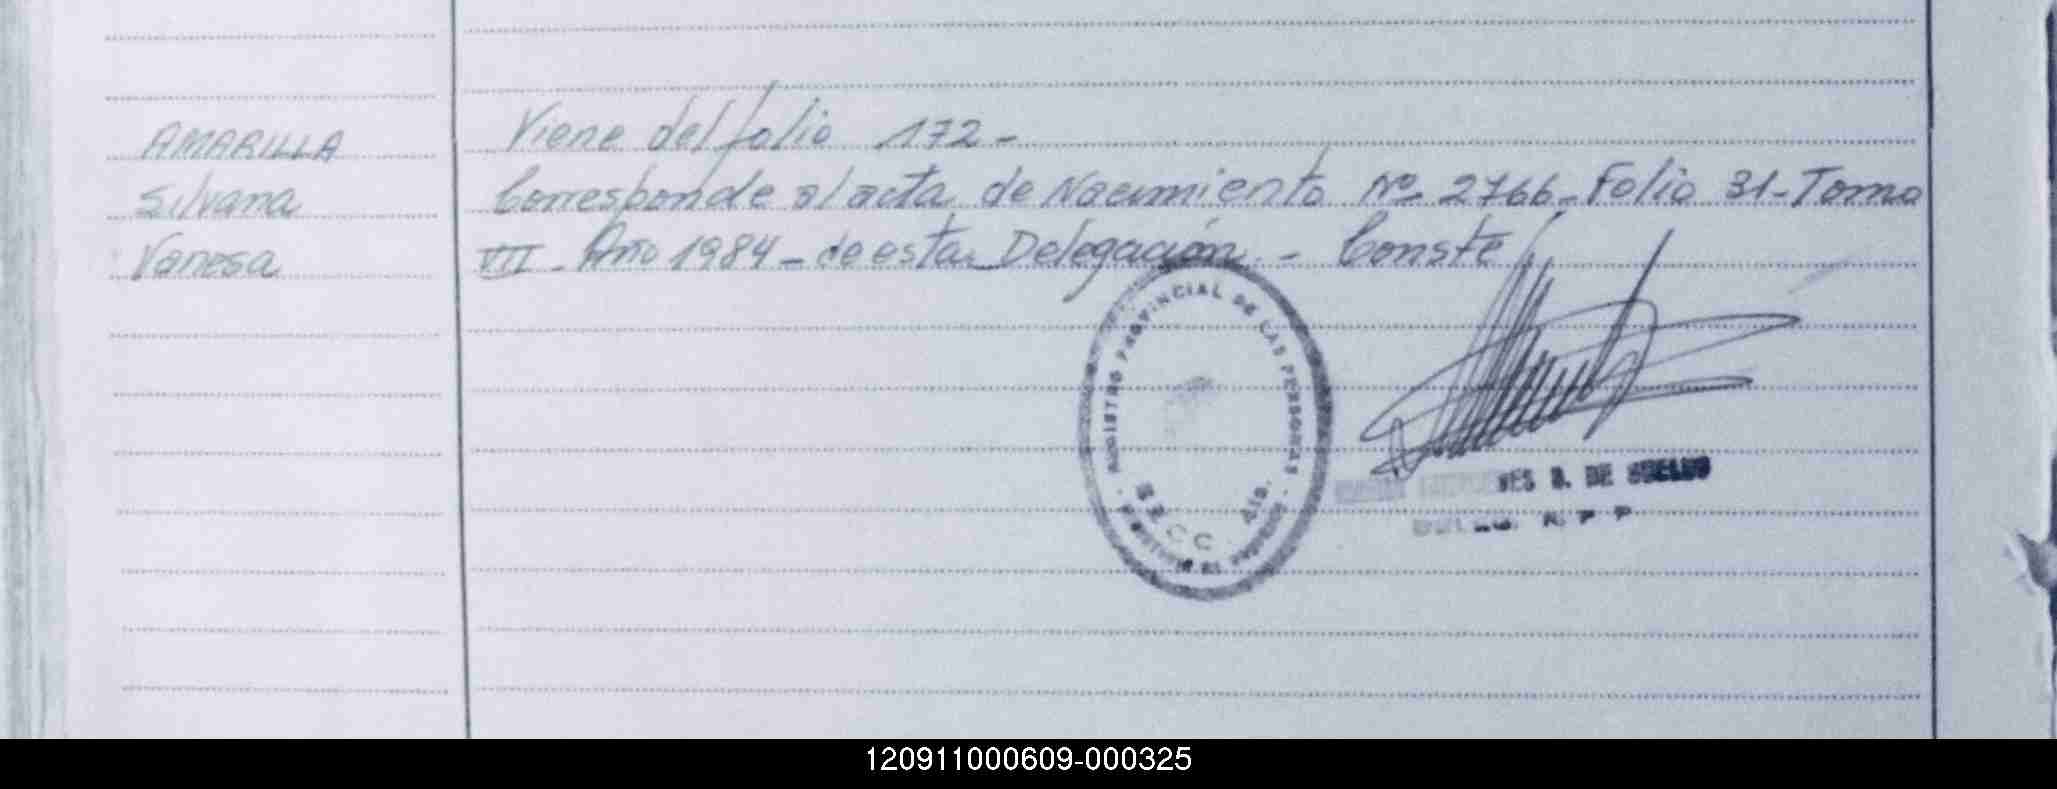 AMARILLA
Silvana
Vanesa
Viene del folio 172-
Corresponde al acta de Nacimiento Nº 2766- Folio 31-Tomo
VII - Año 1984 - de esta Delegación. - Conste
REGISTRO PROVINCIAL DE LAS PERSONAS
B. DE
R. P P
120911000609-000325